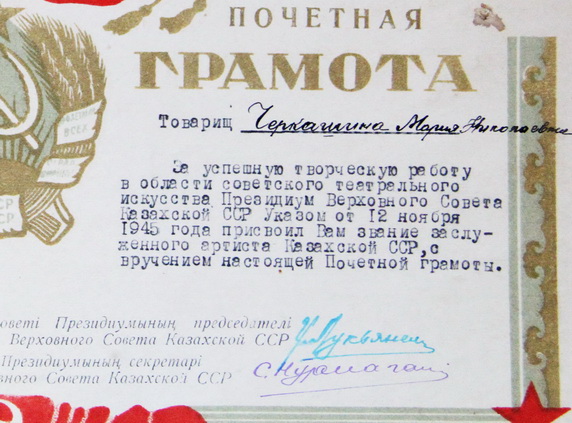 ПОЧЕТНАЯ
ГРАМОТА
Товарищ Черкашина Мария Николаевна
За успешную творческую работу
в области советского театрального
искусства Президиум Верховного Совета
Казахской ССР Указом от 12 ноября
1945 года присвоил Вам звание заслу-
женного артиста Казахской ССР, с
вручением настоящей Почетной грамоты.
оветі Президиумының председателі
Верховного Совета Казахской ССР
Президиумының секретарі
вного Совета Казахской ССР